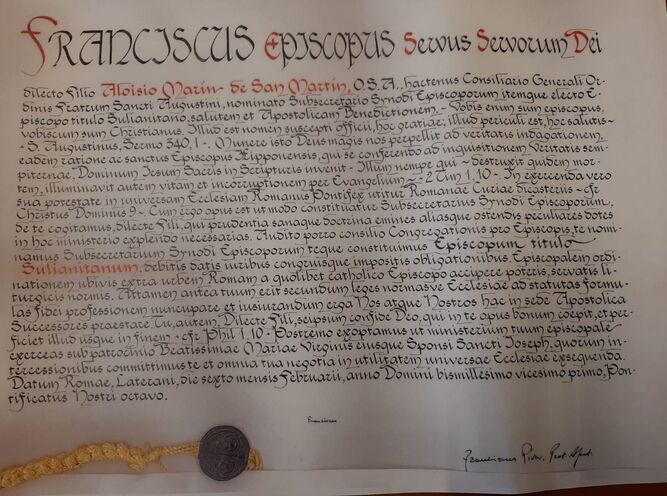 FRANCISCUS EPISCOPUS Servus Servorum Dei
dilecto Filio Aloisio Marín de San Martín, O.S.A., hactenus Consiliario Generali Or-
dinis Fratrum Sancti Augustini, nominato Subsecretario Synodi Episcoporum itemque electo E-
piscopo titulo Sulianitano, salutem et Apostolicam Benedictionem. - Vobis enim sum episcopus,
vobiscum sum Christianus. Illud est nomen suscepti officii, hoc gratiae; illud periculi est, hoc salutis -
- S. Augustinus, Sermo 340, 1 -. Munere isto Deus magis nos perpellit ad veritatis indagationem,
eadem ratione ac sanctus Episcopus Hipponensis, qui se conferendo ad inquisitionem Veritatis sem-
piternae, Dominum Iesum Sacris in Scripturis invenit - Illum nempe qui - destruxit quidem mor-
tem, illuminavit autem vitam et incorruptionem per Evangelium - - 2 Tim 1, 10 -. In exercenda vero
sua potestate in universam Ecclesiam Romanus Pontifex utitur Romanae Curiae dicasteriis - cfr
Christus Dominus 9 -. Cum ergo opus est ut modo constituatur Subsecretarius Synodi Episcoporum,
de te cogitamus, dilecte Fili, qui prudentia sanaque doctrina emines aliasque ostendis peculiares dotes
in hoc ministerio explendo necessarias. Audito porro consilio Congregationis pro Episcopis, te nomi-
namus Subsecretarium Synodi Episcoporum teque constituimus Episcopum titulo
Sulianitanum, debitis datis iuribus congruisque impositis obligationibus. Episcopalem ordi-
nationem ubivis extra urbem Romam a quolibet catholico Episcopo accipere poteris, servatis li-
turgicis normis. Attamen antea tuum erit secundum leges normasve Ecclesiae ad statutas formu-
las fidei professionem nuncupare et iusiurandum erga Nos atque Nostros hac in sede Apostolica
Successores praestare. Tu, autem, Dilecte Fili, seipsum confide Deo, qui in te opus bonum coepit, et per-
ficiet illud usque in finem - cfr Phil 1, 10 -. Postremo exoptamus ut ministerium tuum episcopale
exerceas sub patrocinio Beatissimae Mariae Virginis eiusque Sponsi Sancti Ioseph, quorum in-
tercessionibus committimus te et omnia tua negotia in utilitatem universae Ecclesiae exsequenda.
Datum Romae, Laterani, die sexto mensis Februarii, anno Domini bismillesimo vicesimo primo, Pon-
tificatus Nostri octavo.
Franciscus
Franciscus Piva, Prot. Apost.